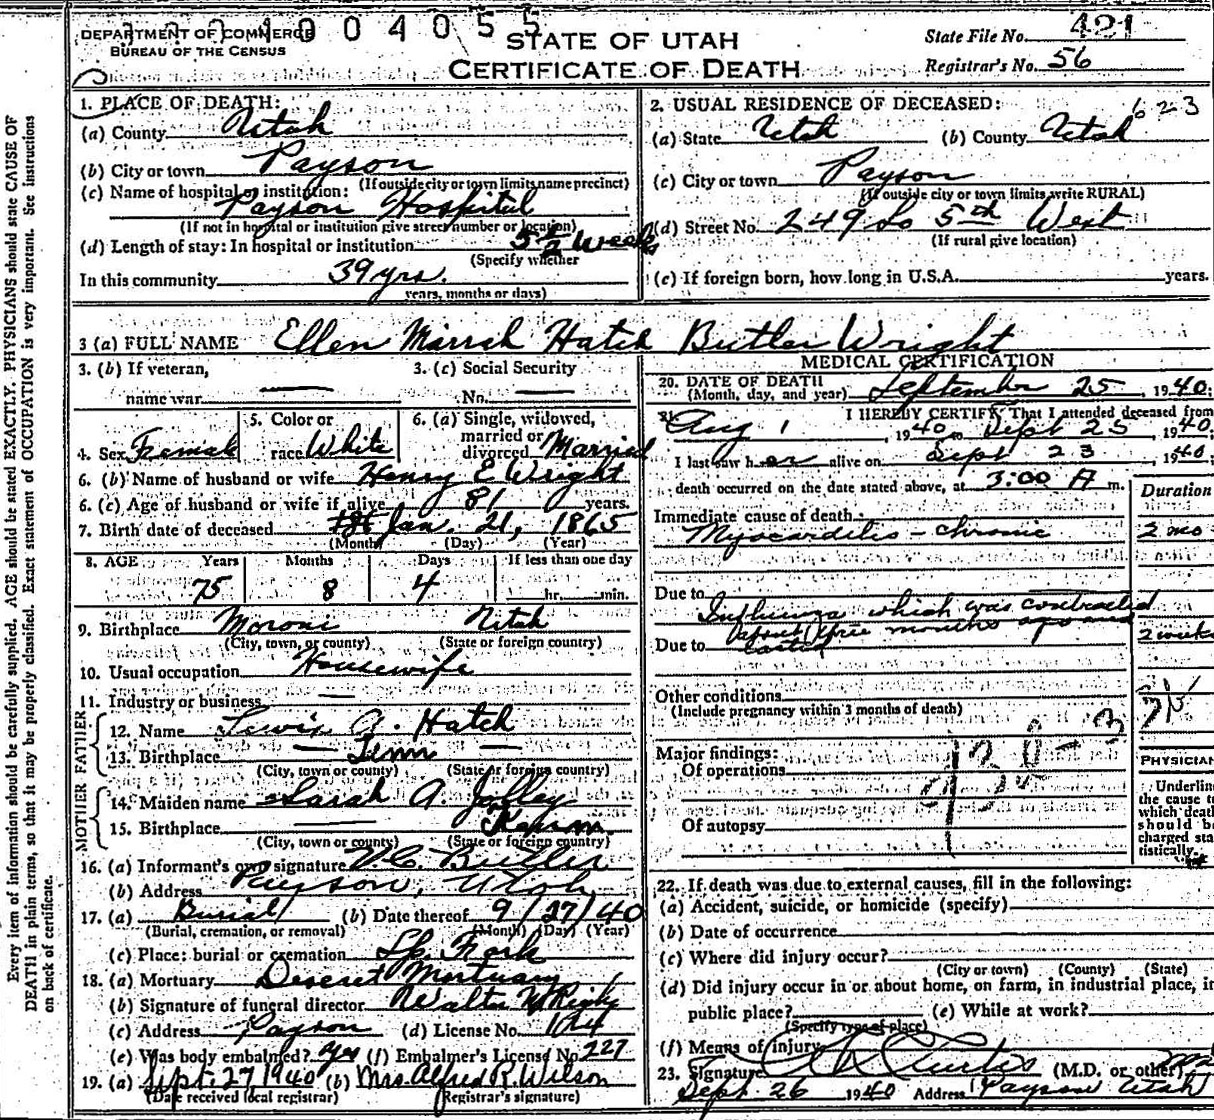 1 0 0 4 0 5 5
DEPARTMENT OF COMMERCE
BUREAU OF THE CENSUS
STATE OF UTAH
CERTIFICATE OF DEATH
State File No. 421
Registrar's No. 56
1. PLACE OF DEATH:
(a) County Utah
(b) City or town Payson
(If outside city or town limits name precinct)
(c) Name of hospital or institution:
Payson Hospital
(If not in hospital or institution give street number or location)
(d) Length of stay: In hospital or institution 5 Weeks
(Specify whether
In this community 39 yrs.
years, months or days)
2. USUAL RESIDENCE OF DECEASED: 623
(a) State Utah (b) County Utah
(c) City or town Payson
(If outside city or town limits write RURAL)
(d) Street No. 249 So 5th West
(If rural give location)
(e) If foreign born, how long in U.S.A. years.
3 (a) FULL NAME Ellen Marrah Hatch Butler Wright
3. (b) If veteran,
name war
3. (c) Social Security
No.
4. Sex Female
5. Color or
race White
6. (a) Single, widowed,
married or
divorced Married
6. (b) Name of husband or wife Henry E Wright
6. (c) Age of husband or wife if alive 81 years.
7. Birth date of deceased Jan. 21, 1865
(Month) (Day) (Year)
8. AGE Years Months Days If less than one day
75 8 4 hr. min.
9. Birthplace Moroni Utah
(City, town, or county) (State or foreign country)
10. Usual occupation Housewife
11. Industry or business
FATHER
12. Name Lewis A. Hatch
13. Birthplace Tenn
(City, town or county) (State or foreign country)
MOTHER
14. Maiden name Sarah A. Jolley
15. Birthplace
(City, town or county) (State or foreign country)
16. (a) Informant's own signature V.C. Butler
(b) Address Payson, Utah
17. (a) Burial (b) Date thereof 9/27/40
(Burial, cremation, or removal) (Month) (Day) (Year)
(c) Place: burial or cremation Sp. Fork
18. (a) Mortuary Deseret Mortuary
(b) Signature of funeral director Walter
(c) Address Payson (d) License No.
(e) Was body embalmed? yes (f) Embalmer's License No. 227
19. (a) Sept. 27, 1940 (b) Mrs. Alfred R. Wilson
(Date received local registrar) (Registrar's signature)
MEDICAL CERTIFICATION
20. DATE OF DEATH
(Month, day, and year) September 25, 1940;
21. I HEREBY CERTIFY That I attended deceased from
Aug 1, 1940 to Sept 25 1940;
I last saw her alive on Sept 23 1940;
death occurred on the date stated above, at 3:00 A m.
Duration
Immediate cause of death
Myocarditis - chronic 2 mo
Due to Influenza which was contracted
about three months ago and
Due to lasted 2 weeks
Other conditions
(Include pregnancy within 3 months of death)
Major findings:
Of operations
Of autopsy
PHYSICIAN
Underline
the cause to
which death
should be
charged sta
tistically.
22. If death was due to external causes, fill in the following:
(a) Accident, suicide, or homicide (specify)
(b) Date of occurrence
(c) Where did injury occur?
(City or town) (County) (State)
(d) Did injury occur in or about home, on farm, in industrial place, in
public place? (e) While at work?
(Specify type of place)
(f) Means of injury
23. Signature Curtis (M.D. or other)
Sept 26 1940 Address Payson Utah
Every item of information should be carefully supplied. AGE should be stated EXACTLY. PHYSICIANS should state CAUSE OF
DEATH in plain terms, so that it may be properly classified. Exact statement of OCCUPATION is very important. See instructions
on back of certificate.